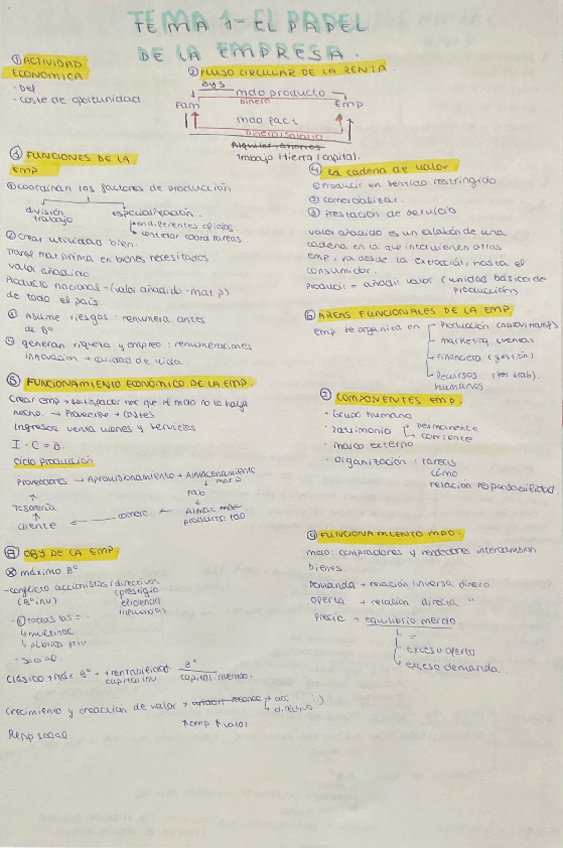 TEMA 1 - EL PAPEL
DE LA EMPRESA.
① ACTIVIDAD
ECONÓMICA
- Def
- coste de oportunidad
② FLUJO CIRCULAR DE LA RENTA.
BYS
mdo producto
dinero
Fam
Emp
mdo fact
dinero/salario
Alquiler ahorros
Trabajo/tierra/capital.
③ FUNCIONES DE LA
EMP
① coordinan los factores de producción
división
trabajo
especialización.
en diferentes oficios
controlar coord tareas.
② crear utilidad bien.
mat prima en bienes necesitados
valor añadido
Producto nacional - (valor añadido - mat p)
de todo el país.
③ Asume riesgos: remunera antes
de Bº
④ generan riqueza y empleo: remuneraciones
innovación → calidad de vida
④ La cadena de valor
① producir en sentido restringido
② comercializar.
③ Prestación de servicio
valor añadido es un eslabón de una
cadena en la que intervienen otras
emp, va desde la extracción, hasta el
consumidor.
Producir = añadir valor (unidad básica de
producción)
⑥ ÁREAS FUNCIONALES DE LA EMP.
emp se organiza en
Producción
marketing (ventas)
Financiera (gestión)
Recursos
humanos
⑤ FUNCIONAMIENTO ECONÓMICO DE LA EMP.
Crear emp → satisfacer nec que el mdo no lo haya
hecho. → Proveerse → costes
Ingresos venta bienes y servicios
I - C = B.
ciclo producción
Proveedores → Aprovisionamiento → Almacenamiento
mat p
Fab
Almac
producto
Tesorería
cliente
comerc
⑦ COMPONENTES EMP.
- Grupo humano
- Patrimonio
permanente
corriente
- marco externo
- organización: tareas
cómo
relación responsabilidad.
⑧ OBJ DE LA EMP.
máximo Bº
- conflicto accionistas/directivos
(Bº inv)
(prestigio
eficiencia
influencias)
- todas las =
- social
Clásico → máx Bº → rentabilidad
capital inv
Bº
capital invertido.
Crecimiento y creación de valor →
acc
directivo
↑emp ↑valor
Resp social
⑨ FUNCIONAMIENTO MDO.
mdo: compradores y vendedores intercambian
bienes
Demanda → relación inversa dinero
oferta → relación directa "
Precio → equilibrio mercdo.
=
exceso oferta
exceso demanda.